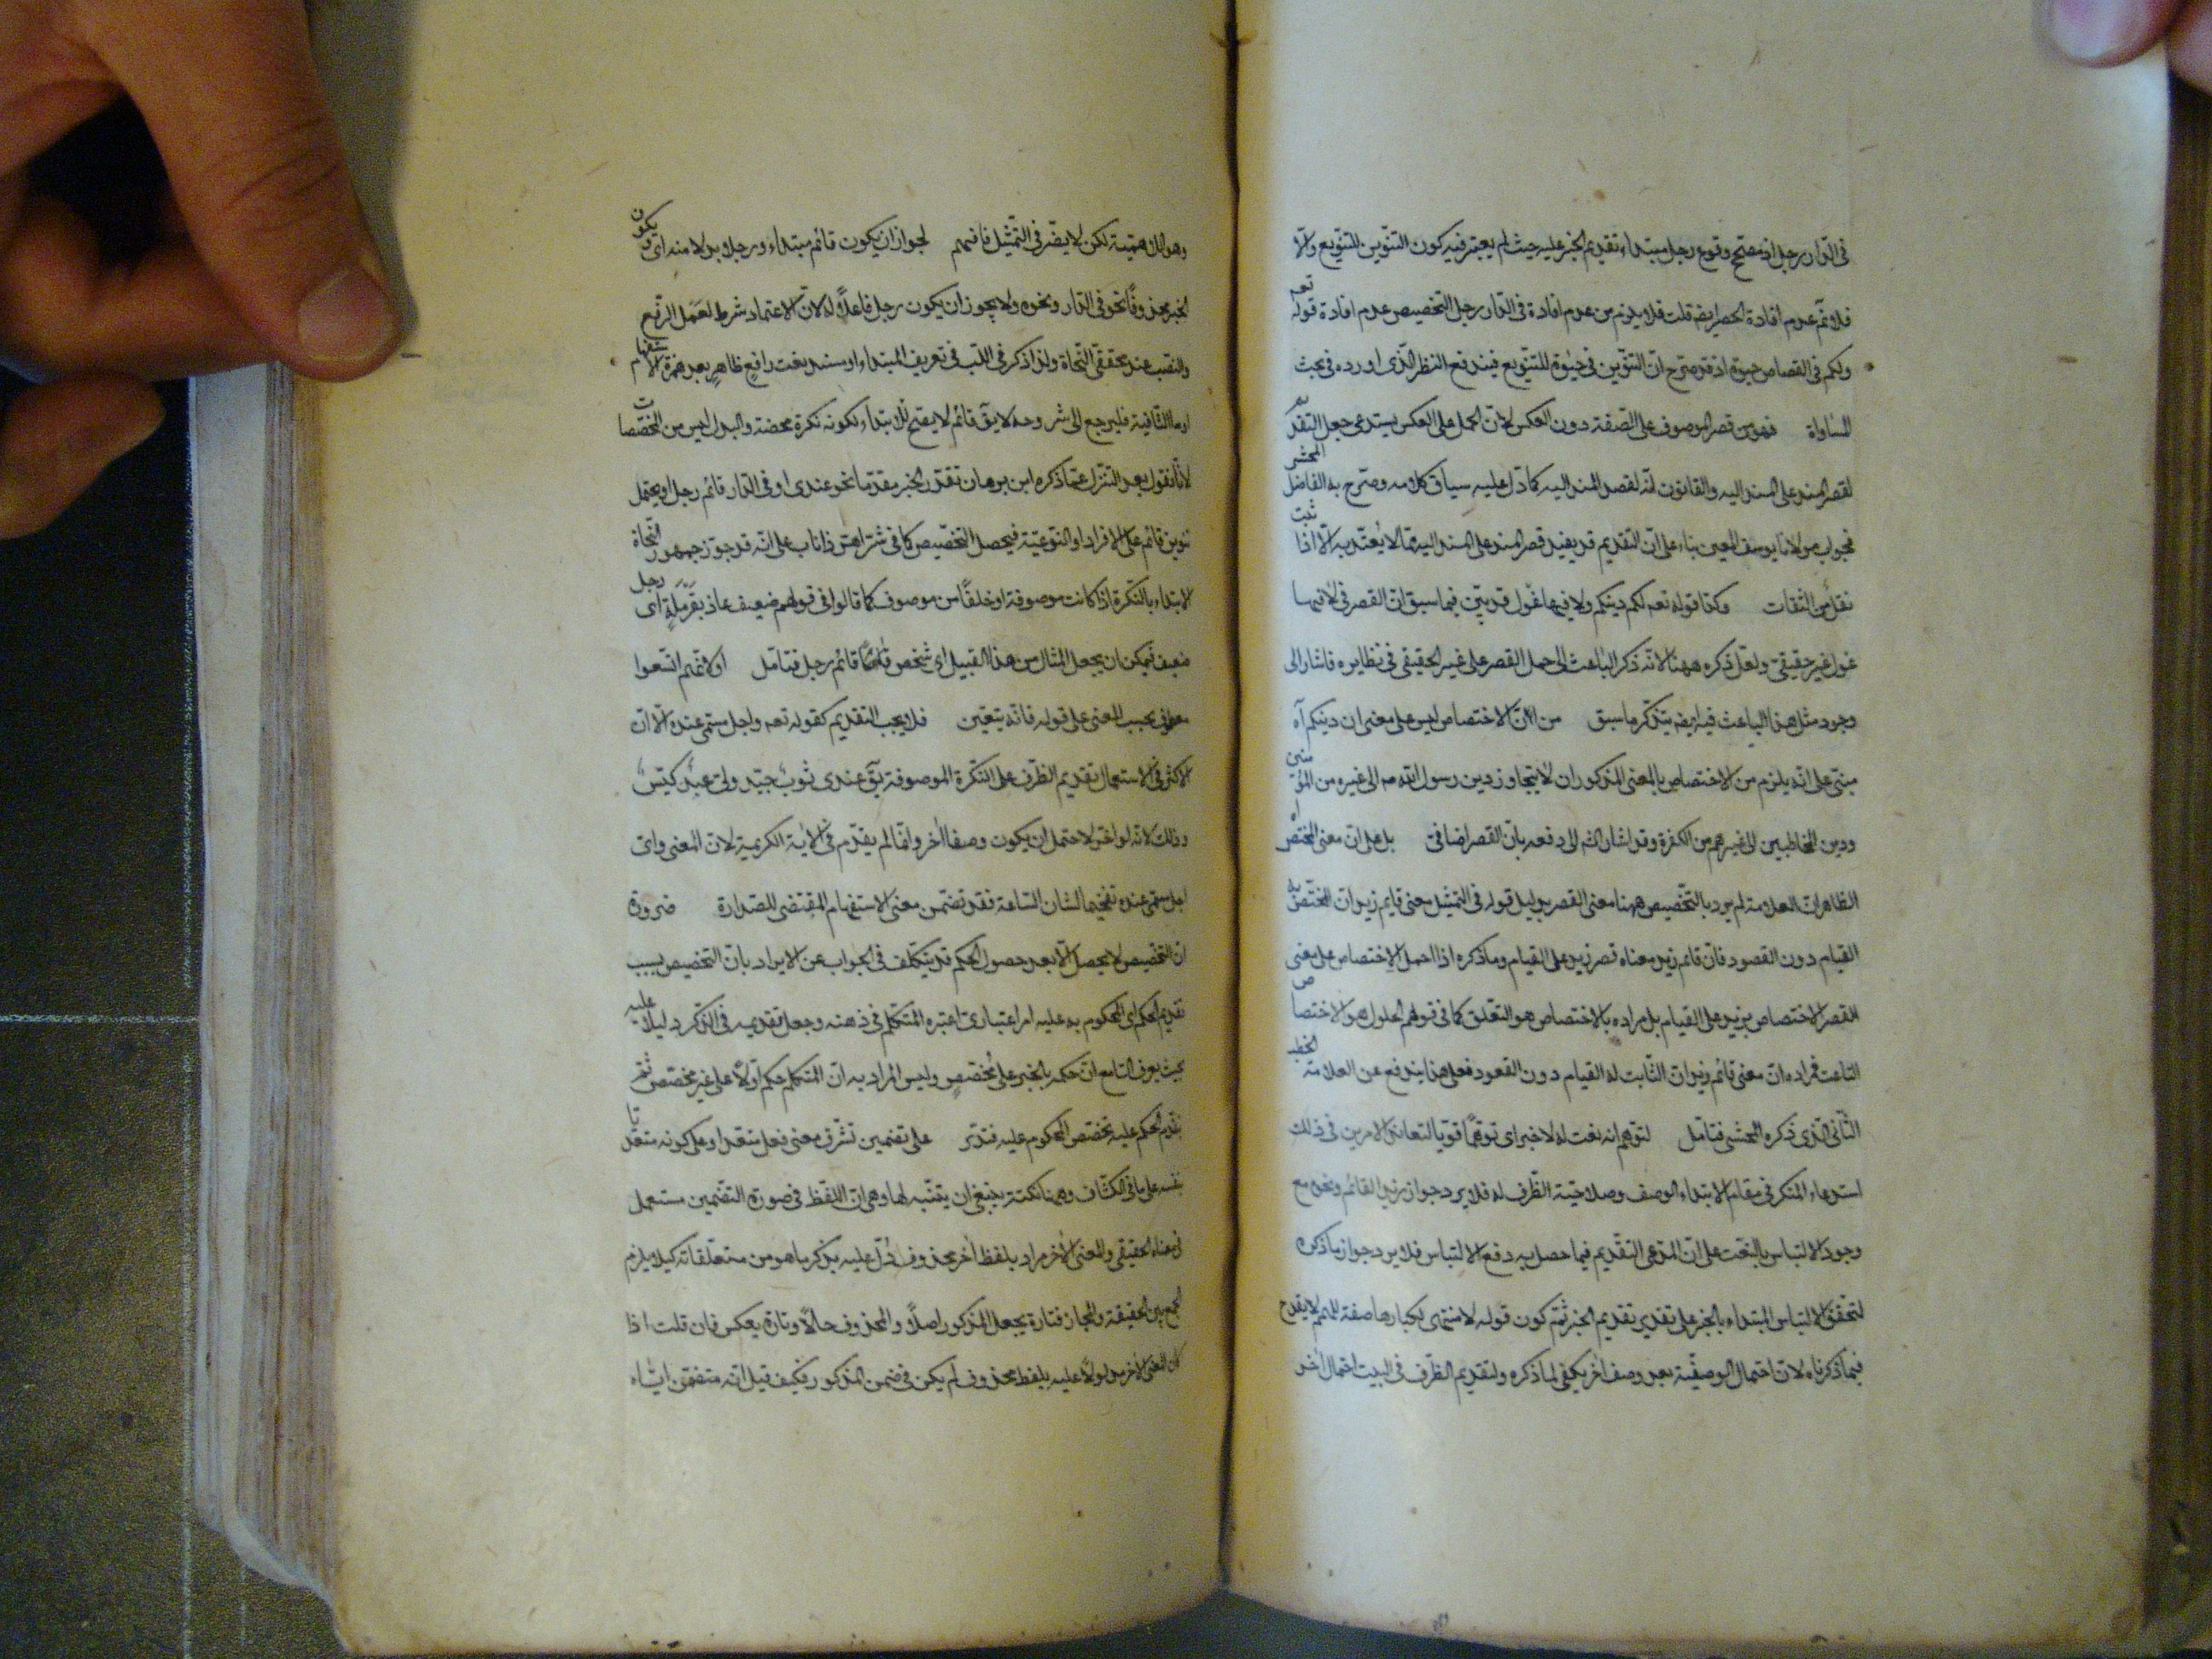 فى الدار رجل اذ مصحح وقوع رجل مبتداء تقديم الخبر عليه حيث لم يعتبر فيه كون التنوين للتنويع والا
فلا تم عدم افادة الحصر ايضا قلت فلا يلزم من عدم افادة فى الدار رجل التخصيص عدم افادة قوله تعم
ولكم فى القصاص حيوة اذ قد صرح ان التنوين فى حيوة للتنويع فيندفع النظر الذى اورده فى بحث
المساواة فهو من قصر الموصوف على الصفة دون العكس لان الحمل على العكس يستدعى جعل التقديم
لقصر المسند على المسند اليه والقانون انه لقصر المسند اليه كما دل عليه سياق كلامه وصرح به الفاضل المحشى
فجواب مولانا يوسف المعين بناء على ان التقديم قد يفيد قصر المسند على المسند اليه مما لا يعتد به الا اذا ثبت
نقل من الثقات وكذا قوله تعم لكم دينكم ولا فيها غول قد بين فيما سبق ان القصر فى لا فيها
غول غير حقيقى ولعل ذكره ههنا لانه ذكر الباعث الى حمل القصر على غير الحقيقى فى نظايره فاشار الى
وجود مثل هذا الباعث فيه ايضا بتذكر ما سبق من ان الاختصاص ليس على معنى ان دينكم آه
مبنى على انه يلزم من الاختصاص بالمعنى المذكور ان لا يتجاوز دين رسول الله صم الى غيره من المؤمنين
ودين المخاطبين الى غيرهم من الكفرة وقد اشار الش الى دفعه بان القصر اضافى بل على ان المختص اه
الظاهر ان العلامة لم يرد بالتخصيص ههنا معنى القصر بدليل قوله فى التمثيل معنى قايم زيد ان المختص به
القيام دون القعود فان قائم زيد معناه قصر زيد على القيام وما ذكره اذا حمل الاختصاص على معنى
القصر الاختصاص بزيد على القيام بل مراده بالاختصاص هو التعلق كما فى قولهم الحلول هو الاختصاص
الناعت فمراده ان معنى قائم زيد ان الثابت له القيام دون القعود فعلى هذا يندفع عن العلامة الخطاء
الثانى الذى ذكره المحشى فتامل لتوهم انه نعت له لا خبر اى توهما قويا لتعاضد الامرين فى ذلك
استدعاء المنكر فى مقام الابتداء الوصف وصلاحية الظرف له فلا يرد جواز زيد القائم ونحوه مع
وجود الالتباس بالنعت على ان المدعى التقديم فيما حصل به دفع الالتباس فلا يرد جواز ما ذكره
لتحقق الالتباس المبتداء بالخبر على تقدير تقديم الخبر ثم كون قوله لا منتهى لكبارها صفة للهمم لا يقدح
فيما ذكرناه لان احتمال الوصفية بعد وصف اخر يكفى لما ذكره ولتقديم الظرف فى البيت احتمال اخر
وهو الاهمية لكن لا يضر فى التمثيل فافهم لجواز ان يكون قائم مبتداء ورجل بدلا منه اى ويكون
الخبر محذوفا نحو فى الدار ونحوه ولا يجوز ان يكون رجل فاعلا له لان الاعتماد شرط لعمل الرفع
والنصب عند محققى النحاة ولذا ذكر فى اللب فى تعريف المبتداء او مسند نعت رافع ظاهر بعد همزة الاستفهام
او ما النافية فليرجع الى شروحه لا يق قائم لا يصح للابتداء لكونه نكرة محضة والبدل ليس من المخصصات
لانا نقول بعد التنزل عما ذكره ابن برهان نقدر الخبر مقدما نحو عندى او فى الدار قائم رجل او يحتمل
تنوين قائم على الافراد او النوعية فيحصل التخصيص كما فى شر اهر ذا ناب على انه قد جوز جمهور النحاة
الابتداء بالنكرة اذا كانت موصوفة او خلفا من موصوف كما قالوا فى قولهم ضعيف عاذ بقرملة اى رجل
ضعيف فيمكن ان يجعل المثال من هذا القبيل اى شخص قائم رجل فتامل اولا نهم اتسعوا
معطوف بحسب المعنى على قوله فانه يتعين فلا يجب التقديم كقوله تعم واجل مسمى عنده الا ان
الاكثر فى الاستعمال تقديم الظرف على النكرة الموصوفة يق عندى ثوب جيد ولى عبد كيس
وذلك لانه لو اخر لاحتمل ان يكون وصفا اخر وانما لم يقدم فى الاية الكريمة لان المعنى واى
اجل مسمى عنده تفخيما لشان الساعة فقد تضمن معنى الاستفهام المقتضى للصدارة ضرورة
ان التخصيص لا يحصل الا بعد حصول الحكم قد يتكلف فى الجواب عن الايراد بان التخصيص بسبب
تقديم الحكم اى المحكوم به عليه امر اعتبارى اعتبره المتكلم فى ذهنه وجعل تقديمه فى الذكر دليلا عليه
بحيث يعرف السامع ان حكمه بالخبر على مخصص وليس المراد به ان المتكلم حكم اولا على غير مخصص ثم
بقدم الحكم عليه تخصص المحكوم عليه فتدبر على تضمين تشرق معنى فعل متعد او على كونه متعديا
بنفسه على ما فى الكشاف وههنا نكتة ينبغى ان يتنبه لها وهى ان اللفظ فى صورة التضمين مستعمل
فى معناه الحقيقى والمعنى الاخر مراد بلفظ اخر محذوف دل عليه بذكر ما هو من متعلقاته كيلا يلزم
الجمع بين الحقيقة والمجاز فتارة يجعل المذكور اصلا والمحذوف حالا وتارة يعكس فان قلت اذا
كان المعنى الاخر مدلولا عليه بلفظ محذوف لم يكن فى ضمن المذكور فكيف قيل انه متضمن اياه